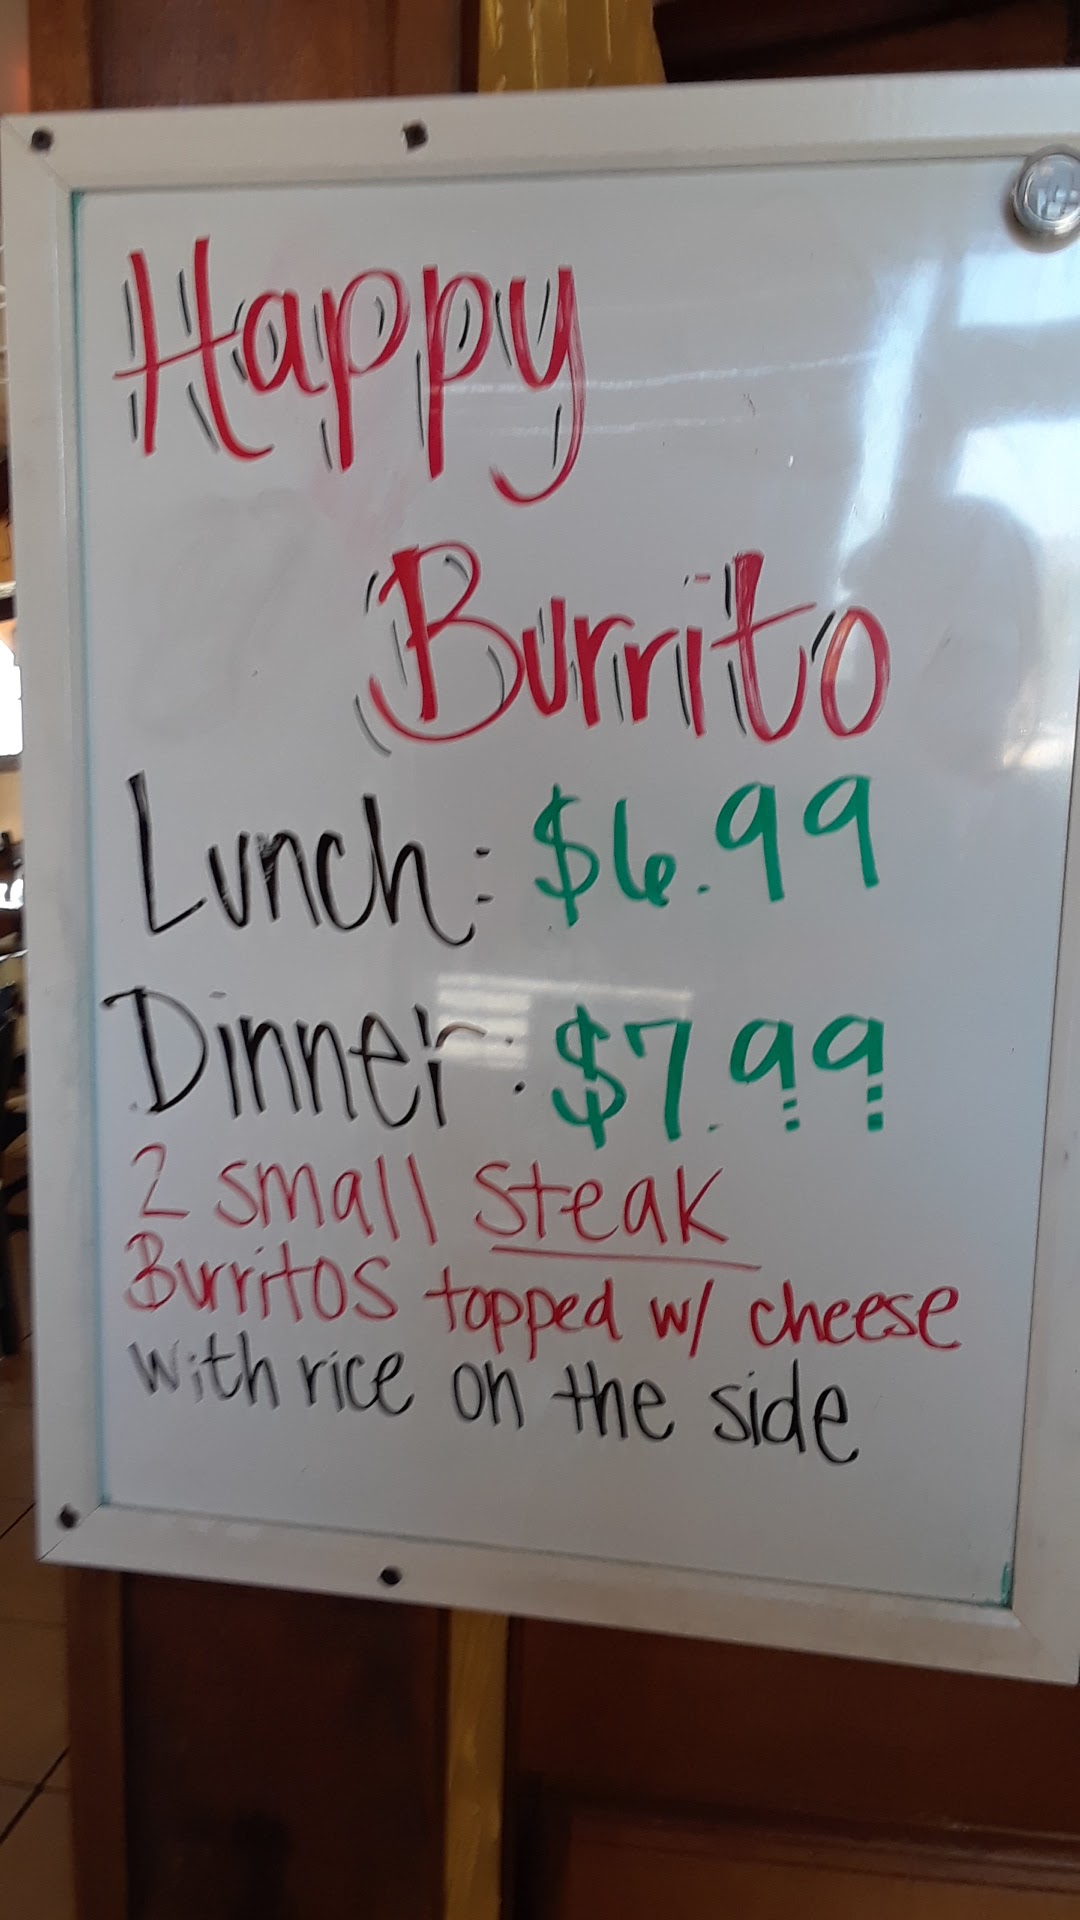 Happy
Burrito
Lunch: $6.99
Dinner: $7.99
2 small steak
Burritos topped w/ cheese
with rice on the side